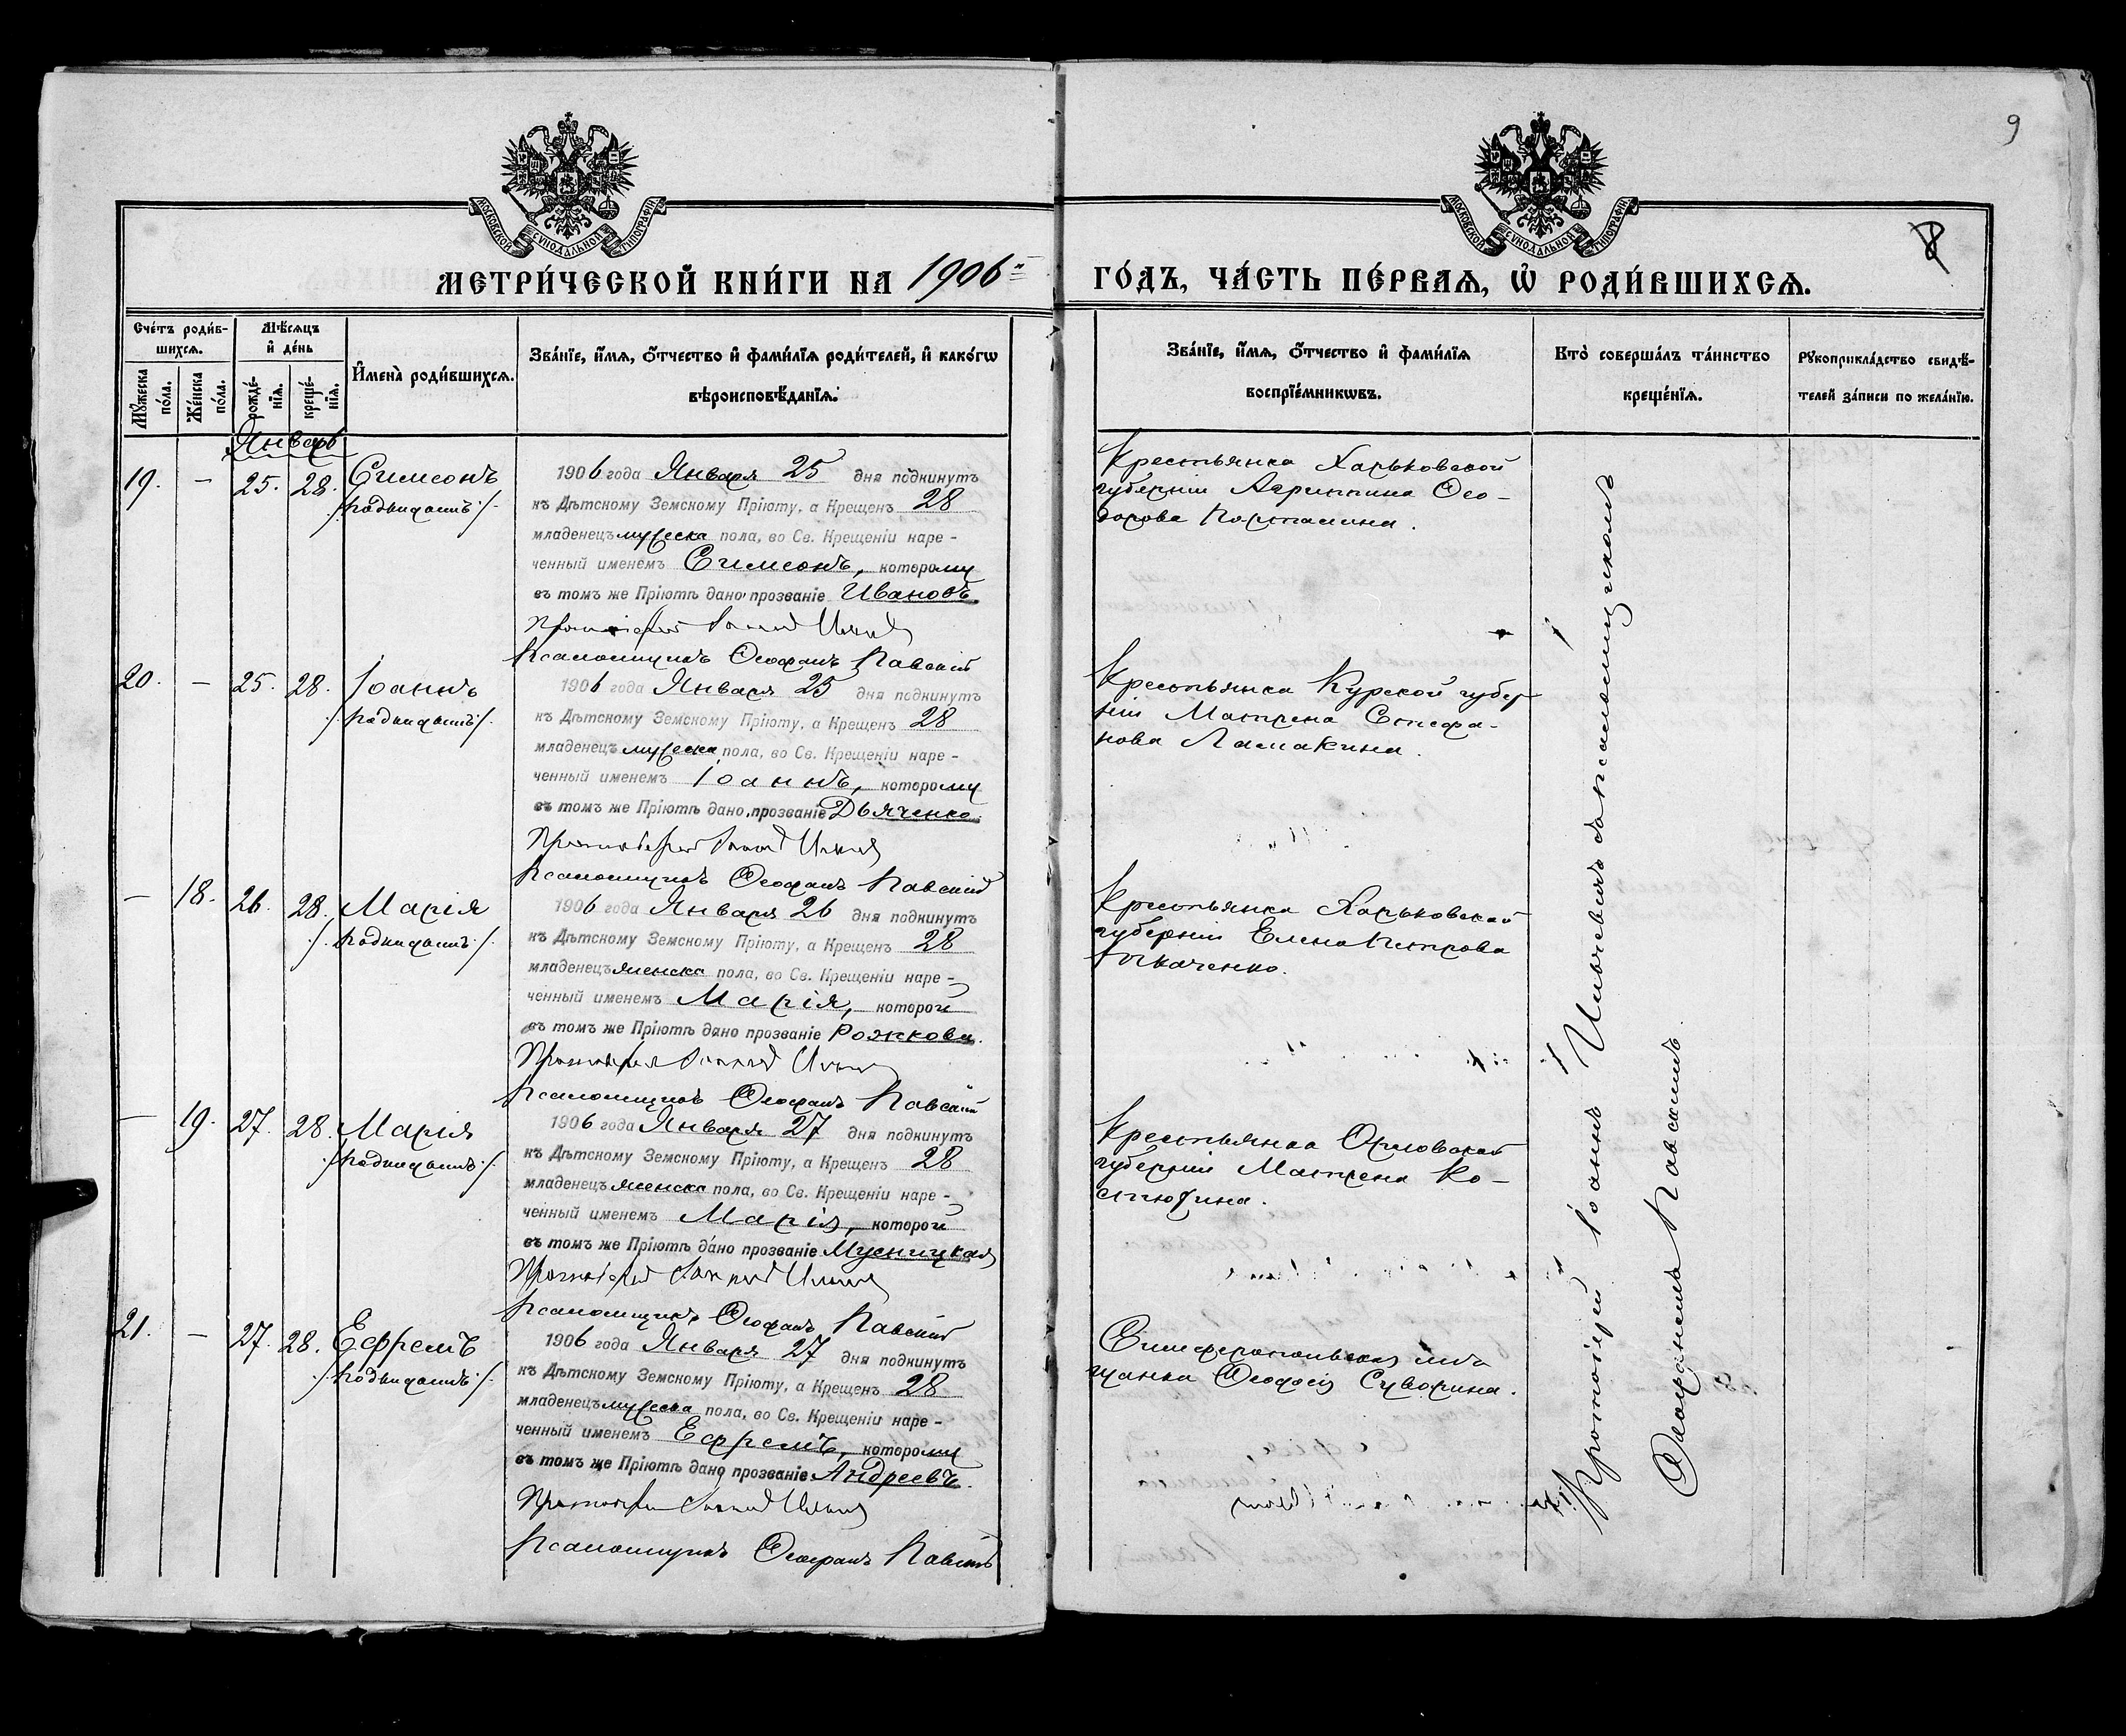 9
8
МОСКОВСКОЙ СѴНОДАЛЬНОЙ ТИПОГРАФІИ
МОСКОВСКОЙ СѴНОДАЛЬНОЙ ТИПОГРАФІИ
МЕТРИ́ЧЕСКОЙ КНИ́ГИ НА 1906 ГО́ДЪ, ЧА́СТЬ ПЕ́РВАѦ, Ѡ҆ РОДИ́ВШИХСѦ.
Сче́тъ роди́в-
шихсѧ.
Мꙋ́жеска по́ла.
Же́нска по́ла.
Мѣ́сѧцъ
и҆ де́нь
рожде́-
нїѧ.
креще́-
нїѧ.
И҆мена̀ роди́вшихсѧ.
Зва́нїе, и҆́мѧ, ѻ҆́тчество и҆ фами́лїѧ роди́телей, и҆ како́гѡ
вѣроисповѣ́данїѧ.
Зва́нїе, и҆́мѧ, ѻ҆́тчество и҆ фами́лїѧ
воспрїе́мникѡвъ.
Кто̀ соверша́лъ та́инство
креще́нїѧ.
Рꙋкоприкла́дство свидѣ́-
телей за́писи по жела́нїю.
Январь
19. - 25. 28. Симеонъ
/:подкидышъ:/.
1906 года Января 25 дня подкинутъ
къ Дѣтскому Земскому Пріюту, а Крещенъ 28
младенецъ мужеска пола, во Св. Крещеніи наре-
ченный именемъ Симеонъ, которому
въ томъ же Пріютѣ дано прозваніе Ивановъ
Протоіерей Іоаннъ
Псаломщикъ Ѳеофанъ Павскій
Крестьянка Харьковской
губерніи Агриппина Ѳео-
дорова
20. - 25. 28. Іоаннъ
/:подкидышъ:/.
1906 года Января 25 дня подкинутъ
къ Дѣтскому Земскому Пріюту, а Крещенъ 28
младенецъ мужеска пола, во Св. Крещеніи наре-
ченный именемъ Іоаннъ, которому
въ томъ же Пріютѣ дано прозваніе Дьяченко.
Протоіерей Іоаннъ
Псаломщикъ Ѳеофанъ Павскій
Крестьянка Курской губер
ніи Матрена Стефа-
нова Ламакина.
- 18. 26. 28. Марія
/:подкидышъ:/.
1906 года Января 26 дня подкинутъ
къ Дѣтскому Земскому Пріюту, а Крещенъ 28
младенецъ женска пола, во Св. Крещеніи наре-
ченный именемъ Марія, которой
въ томъ же Пріютѣ дано прозваніе Рожкова.
Протоіерей Іоаннъ
Псаломщикъ Ѳеофанъ Павскій
Крестьянка Харьковской
губерніи Елена Петрова
Ткаченко.
- 19. 27. 28. Марія
/:подкидышъ:/.
1906 года Января 27 дня подкинутъ
къ Дѣтскому Земскому Пріюту, а Крещенъ 28
младенецъ женска пола, во Св. Крещеніи наре-
ченный именемъ Марія, которой
въ томъ же Пріютѣ дано прозваніе Мусницкая
Протоіерей Іоаннъ
Псаломщикъ Ѳеофанъ Павскій
Крестьянка Орловской
губерніи Матрена Ко-
стюрина.
21. - 27. 28. Ефремъ
/:подкидышъ:/.
1906 года Января 27 дня подкинутъ
къ Дѣтскому Земскому Пріюту, а Крещенъ 28
младенецъ мужеска пола, во Св. Крещеніи наре-
ченный именемъ Ефремъ, которому
въ томъ же Пріютѣ дано прозваніе Андреевъ.
Протоіерей Іоаннъ
Псаломщикъ Ѳеофанъ Павскій
Симферопольская мѣ
щанка Ѳеодосія Суворина.
Протоіерей Іоаннъ съ псаломщикомъ
Ѳеофаномъ Павскимъ.